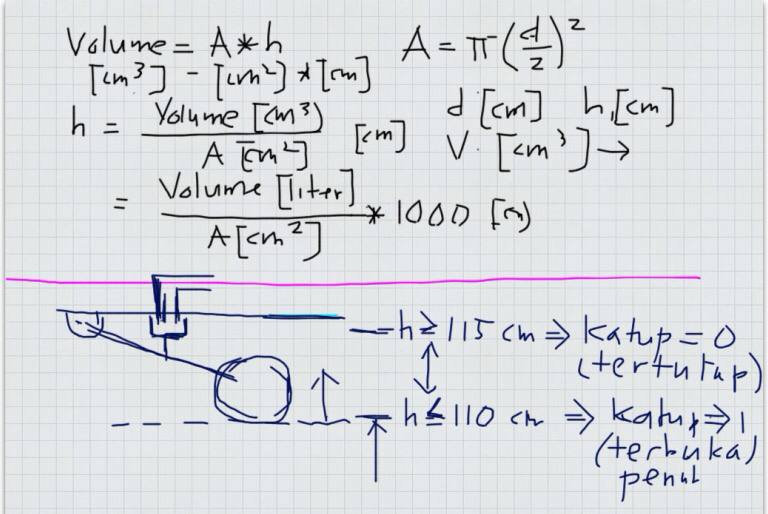 Volume = A * h
A = π(d/2)²
[cm³] - [cm²] * [cm]
h = Volume [cm³] / A [cm²] [cm]
d [cm] h, [cm]
V. [cm³] →
= Volume [liter] / A [cm²] * 1000 [cm]
h ≥ 115 cm ⇒ katup = 0
(tertutup)
h ≤ 110 cm ⇒ katup ⇒ 1
(terbuka)
penuh